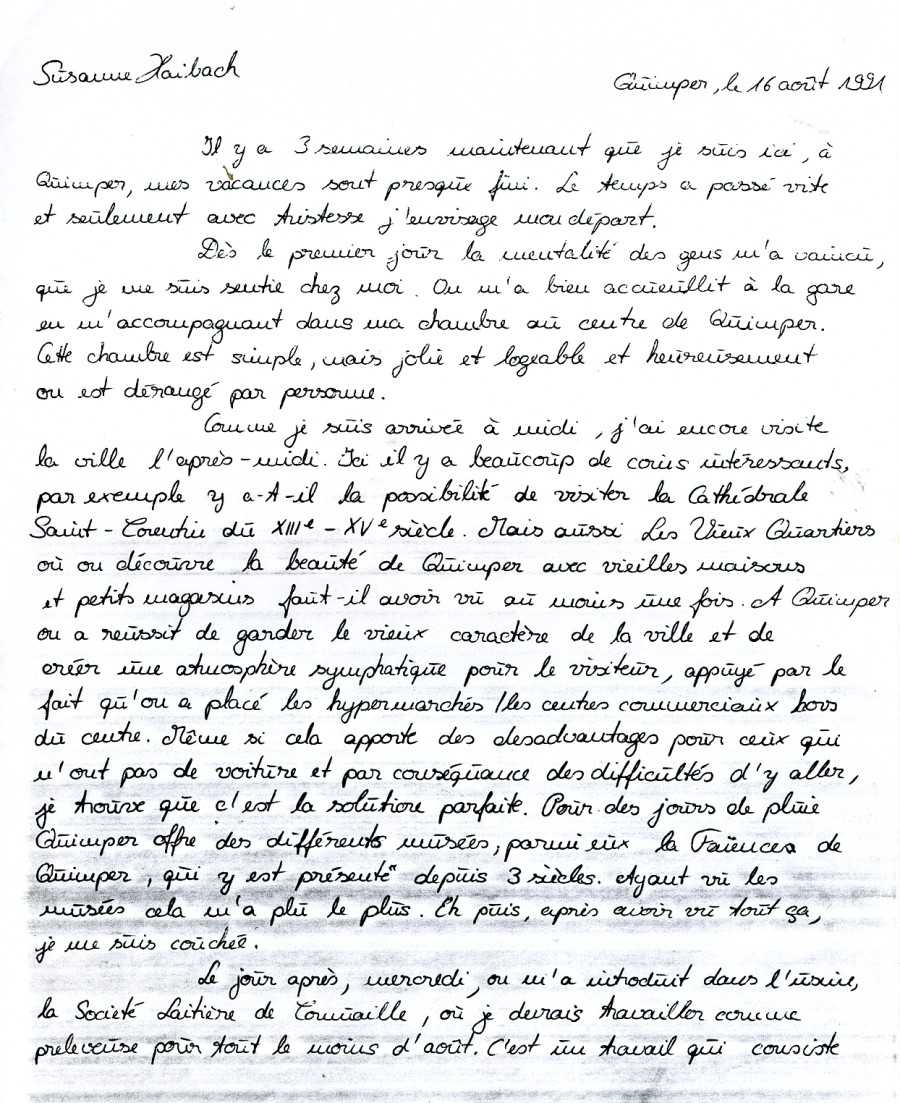 Susanne Haibach
Quimper, le 16 août 1991
Il y a 3 semaines maintenant que je suis ici, à
Quimper, mes vacances sont presque fini. Le temps a passé vite
et seulement avec tristesse j'envisage mon départ.
Dès le premier jour la mentalité des gens m'a vaincu,
que je me suis sentie chez moi. On m'a bien accueuillit à la gare
en m'accompagnant dans ma chambre au centre de Quimper.
Cette chambre est simple, mais jolie et logeable et heureusement
on est dérangé par personne.
Comme je suis arrivée à midi, j'ai encore visite
la ville l'après-midi. Ici il y a beaucoup de coins intéressants,
par exemple y a-t-il la possibilité de visiter la Cathédrale
Saint-Corentin du XIIIe - XVe siècle. Mais aussi Les Vieux Quartiers
où on découvre la beauté de Quimper avec vieilles maisons
et petits magasins faut-il avoir vu au moins une fois. A Quimper
on a reussit de garder le vieux caractère de la ville et de
créer une atmosphère symphatique pour le visiteur, appuyé par le
fait qu'on a placé les hypermarchés / les centres commerciaux hors
du centre. Même si cela apporte des desadvantages pour ceux qui
n'ont pas de voiture et par conséquance des difficultés d'y aller,
je trouve que c'est la solution parfaite. Pour des jours de pluie
Quimper offre des différents musées, parmi eux la Faïences de
Quimper, qui y est présenté depuis 3 siècles. Ayant vu les
musées cela m'a plu le plus. Eh puis, après avoir vu tout ça,
je me suis couchée.
Le jour après, mercredi, on m'a introduit dans l'usine,
la Societé Laitière de Cornuaille, où je devrais travailler comme
preleveuse pour tout le moins d'août. C'est un travail qui consiste